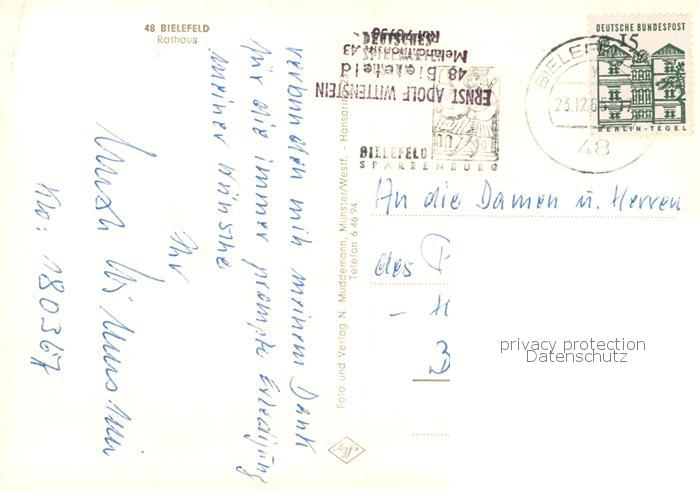 48 BIELEFELD
Rathaus
verbunden mit meinem Dank
für die immer prompte Erledigung
meiner Wünsche
Ihr
Kto: 180367
Foto und Verlag N. Muddemann, Münster/Westf. - Hansaring
Telefon 6 46 94
ERNST ADOLF WITTENSTEIN
48 Bielefeld
BIELEFELD
SPARRENBURG
BIELEFELD
23.12.66
48
DEUTSCHE BUNDESPOST
15
BERLIN-TEGEL
An die Damen u. Herren
des
privacy protection
Datenschutz